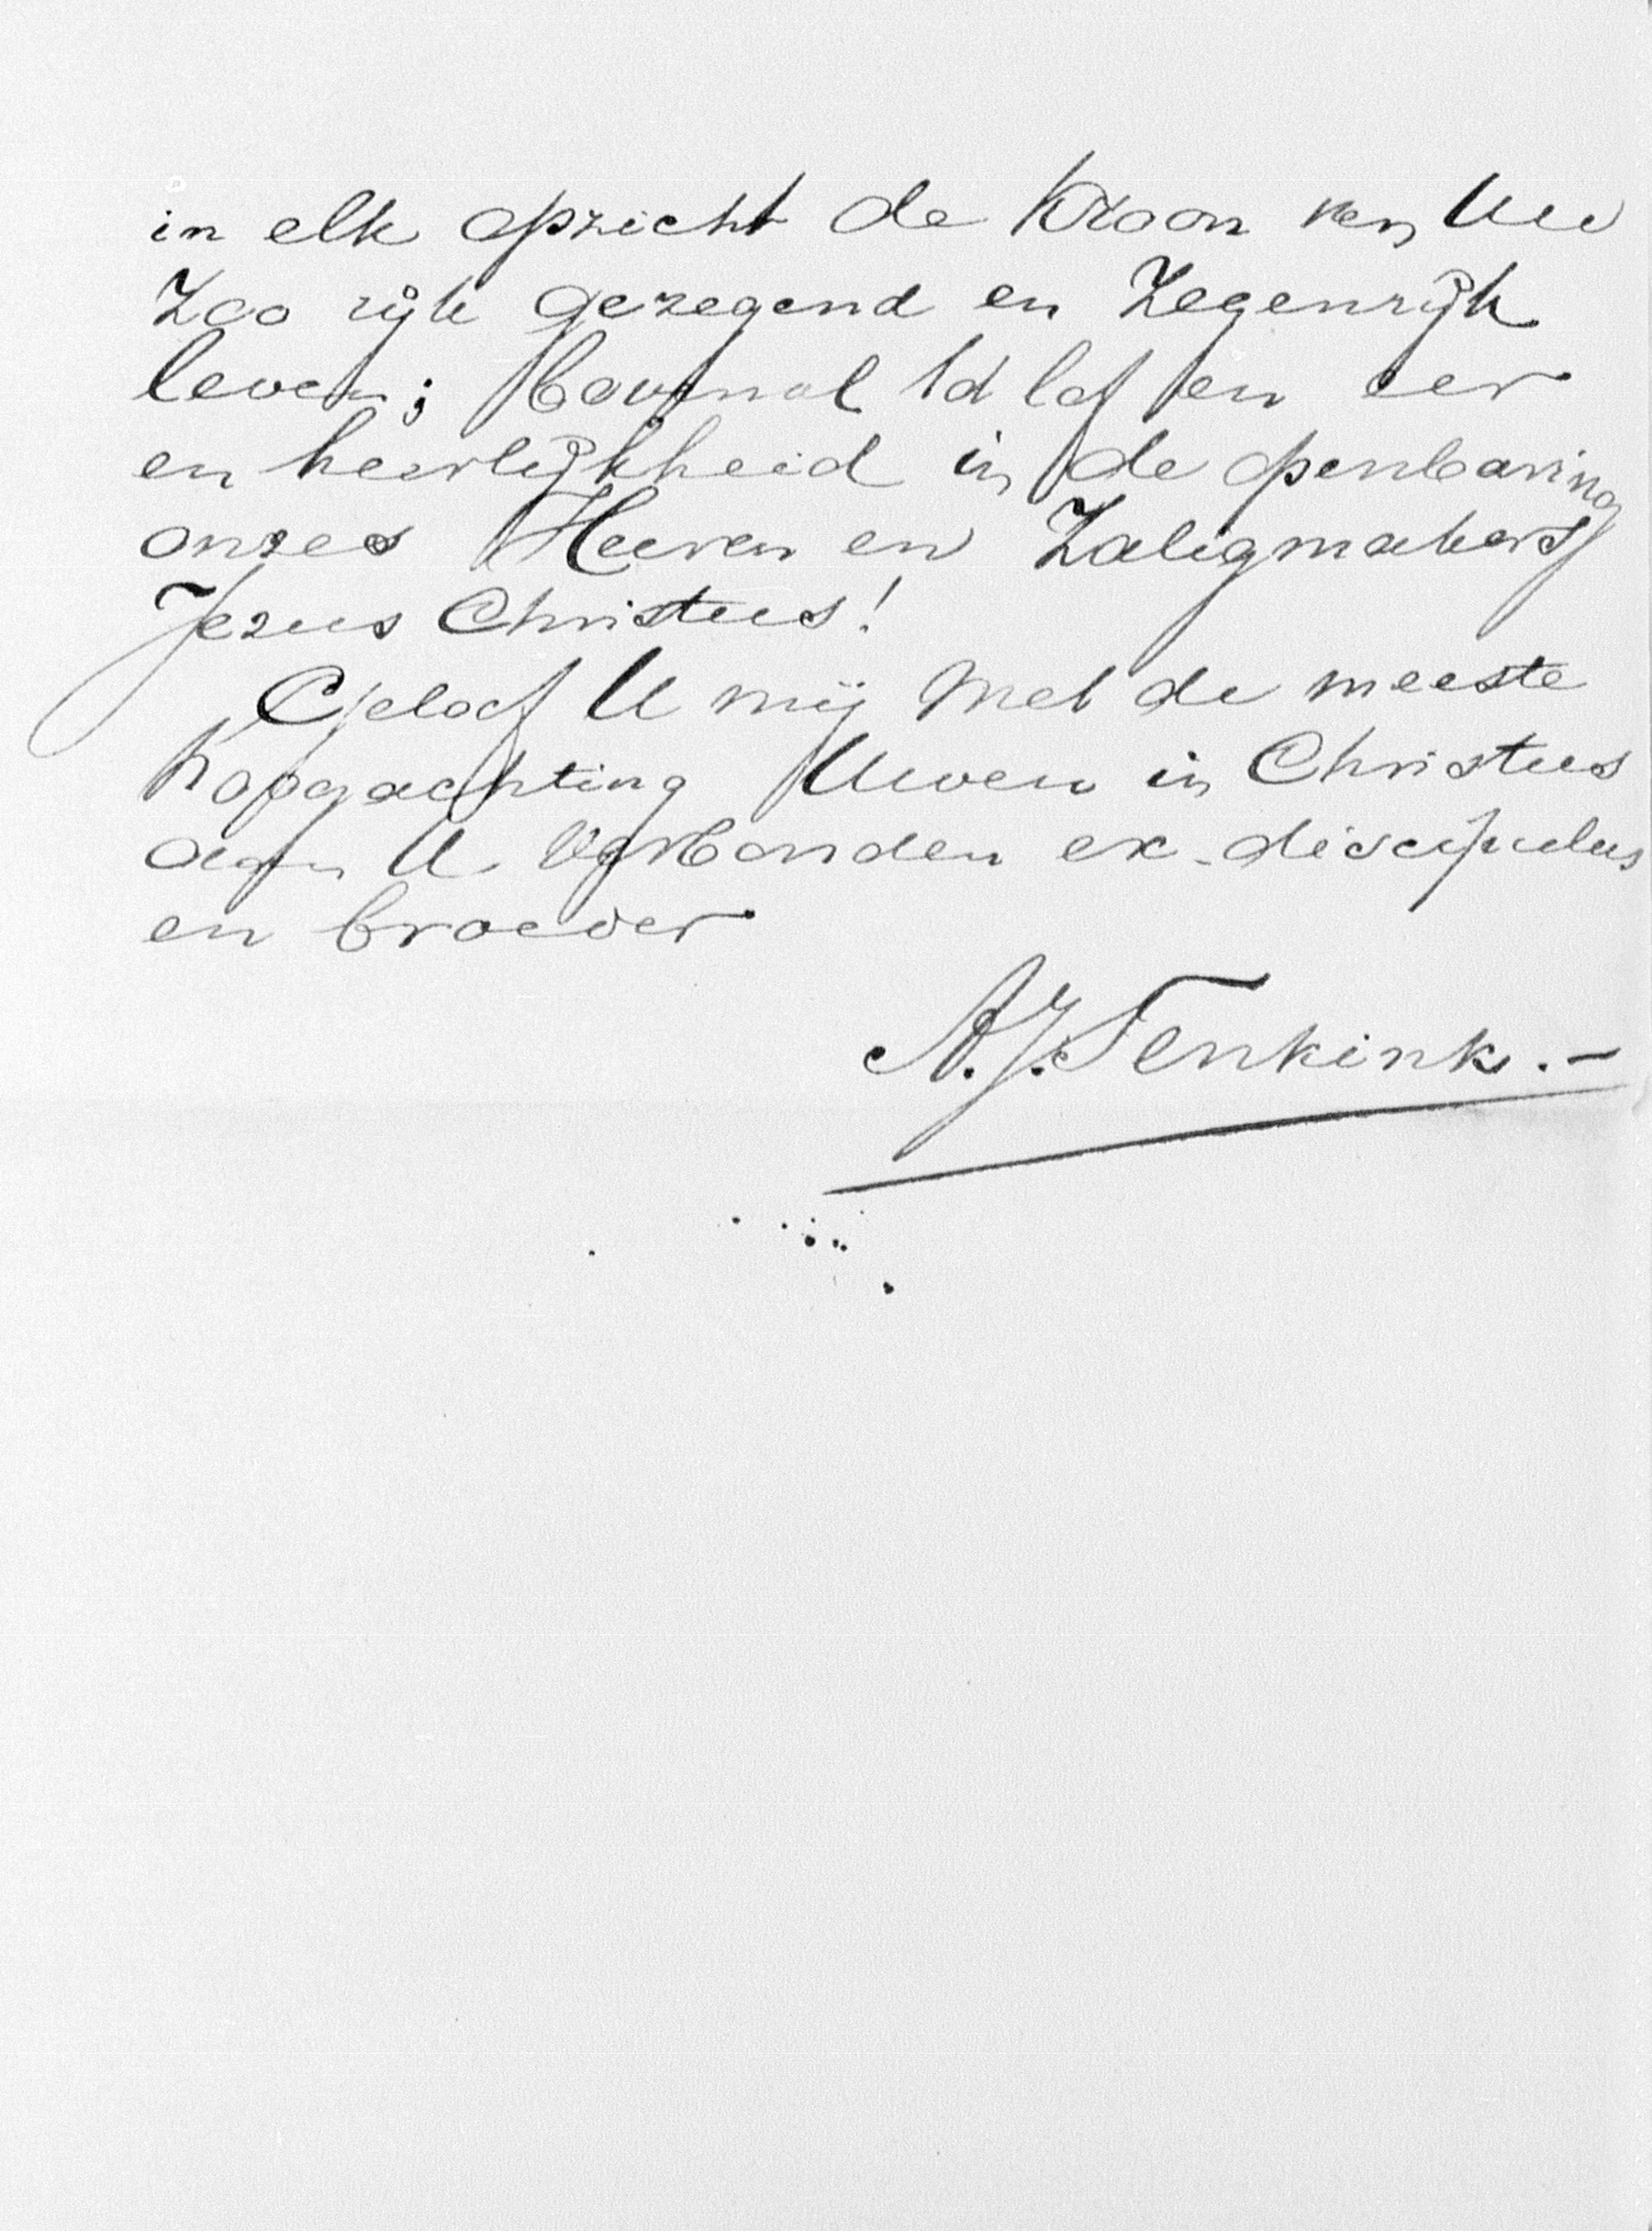 in elk opzicht de Kroon van Uw
Zoo rijk gezegend en Zegenrijk
leven; bovenal tot lof en eer
en heerlijkheid in de openbaring
onzes Heeren en Zaligmakers
Jezus Christus!
Geloof U mij met de meeste
hoogachting Uwen in Christus
aan U verbonden ex-discipulus
en broeder
A.J. Tenkink.-